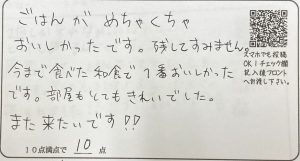 ごはんが めちゃくちゃ
おいしかったです。残してすみません。
今まで食べた和食で1番おいしかった
です。部屋もとてもきれいでした。
また来たいです!!
10点満点で 10 点
スマホでも投稿
OK!チェック欄
記入後フロント
へお渡し下さい。